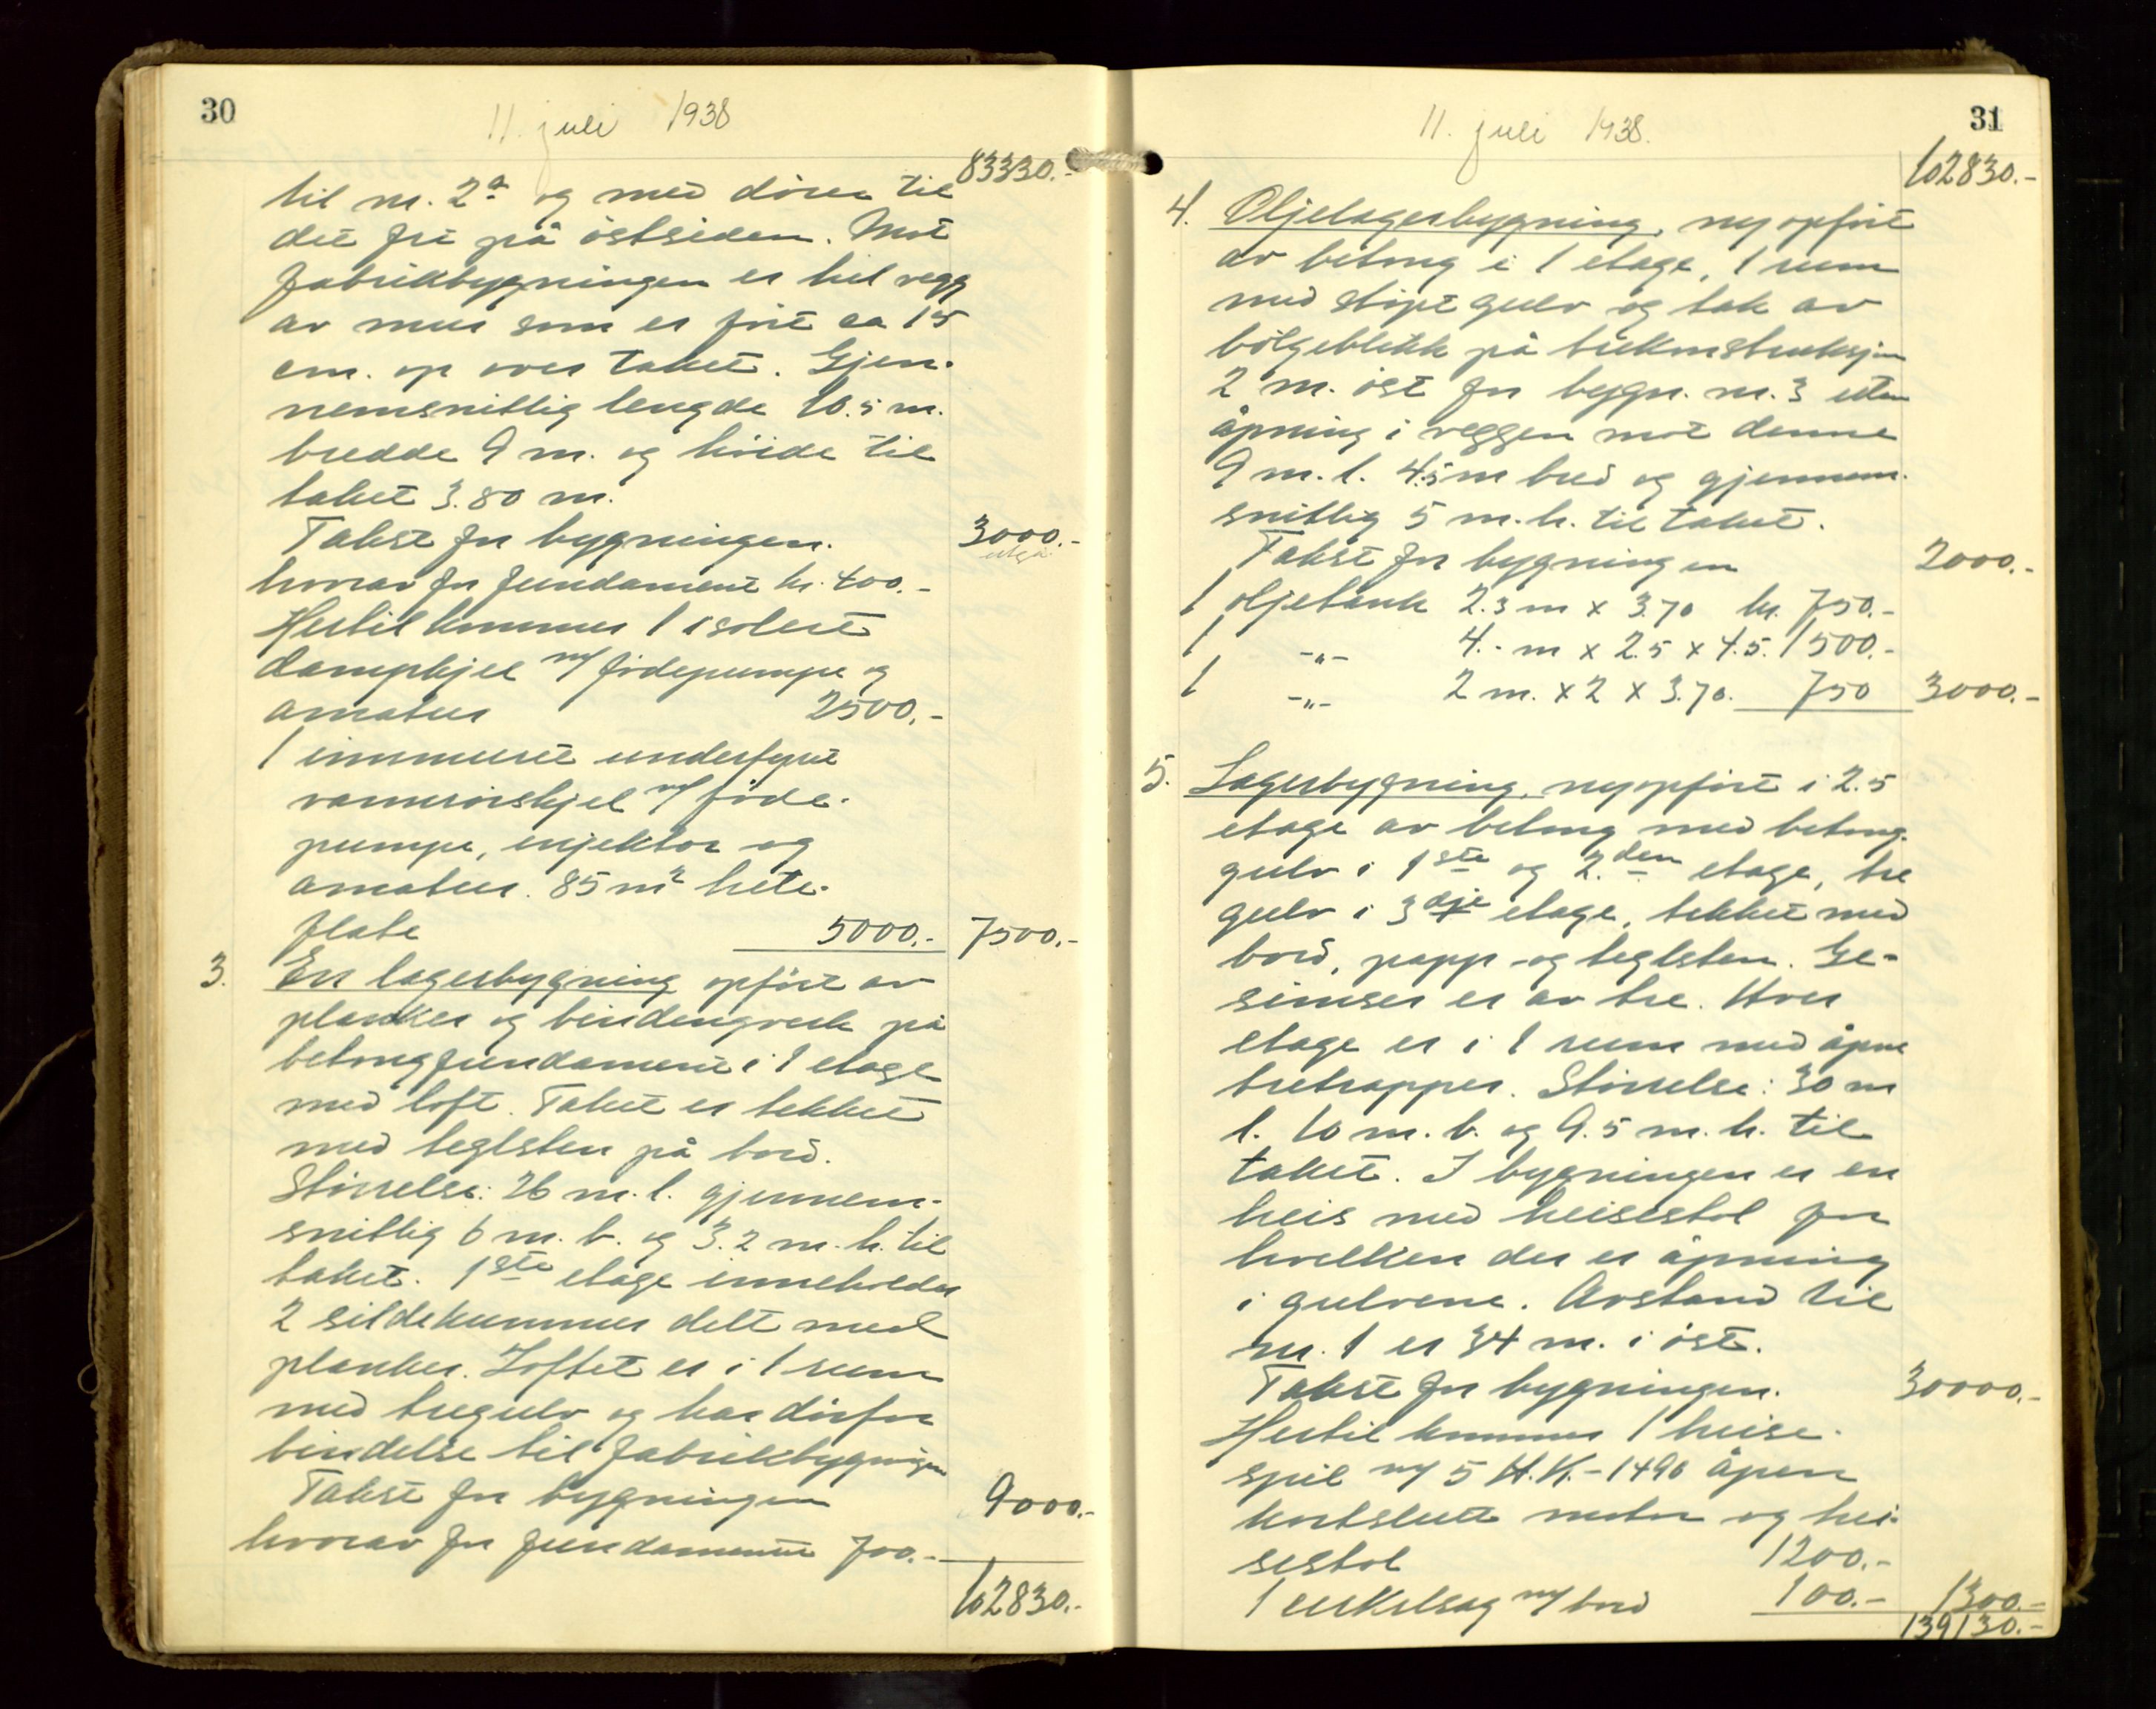 30
11. juli 1938
83330.-
til nr. 2a og med dörer til
det fri på östsiden. Mot
fabrikbygningen er hel vegg
av mur som er fört ca 15
cm. op over taket. Gjen-
nemsnitlig lengde 10.5 m.
bredde 9 m. og höide til
taket 3.80 m.
Takst for bygningen. 3000.-
utgår
hvorav for fundament kr. 400.-
Hertil kommer 1 isolert
dampkjel m/ födepumpe og
amatur 2500.-
1 innmuret underfyrt
vannrörskjel m/ föde-
pumpe, injektor og
amatur. 85 m² hete-
flate 5000.- 7500.-
3. En lagerbygning opfört av
planker og bindingverk på
betongfundament i 1 etage
med loft. Taket er tekket
med teglsten på bord.
Störrelse: 26 m. l. gjennem-
snitlig 6 m. b. og 3.2 m. h. til
taket. 1ste etage inneholder
2 sildekummer delt med
planker. Loftet er i 1 rum
med tregulv og har dörfor
bindelse til fabrikkbygningen
Takst for bygningen 9000.-
hvorav for fundamentet 700.-
102830.-
31
11. juli 1938.
102830.-
4. Oljelagerbygning, ny opfört
av betong i 1 etage, 1 rum
med stöpt gulv og tak av
bölgeblikk på trekonstruksjon
2 m. öst for bygn. nr. 3 uten
åpning i veggen mot denne
9 m. l. 4.5 m bred og gjennem-
snitlig 5 m. h. til taket.
Takst for bygningen 2000.-
1 oljetank 2.3 m x 3.70 kr. 750.-
1 -"- 4.- m x 2.5 x 4.5. 1500.-
1 -"- 2 m. x 2 x 3.70. 750 3000.-
5. Lagerbygning, nyopfört i 2.5
etage av betong med betong-
gulv i 1ste og 2.den etage, tre
gulv i 3dje etage, tekket med
bord, papp og teglsten. Ge-
simser er av tre. Hver
etage er i 1 rum med åpne
tretrapper. Störrelse: 30 m
l. 10 m. b. og 9.5 m. h. til
taket. I bygningen er en
heis med heisestol for
hvilken der er åpning
i gulvene. Avstand til
nr. 1 er 34 m. i öst.
Takst for bygningen. 30000.-
Hertil kommer 1 heise-
spil m/ 5 H.K. - 1490 åpen
kortslutt motor og hei-
sestol 1200.-
1 cirkelsag m/ bord 100.- 1300.-
139130.-